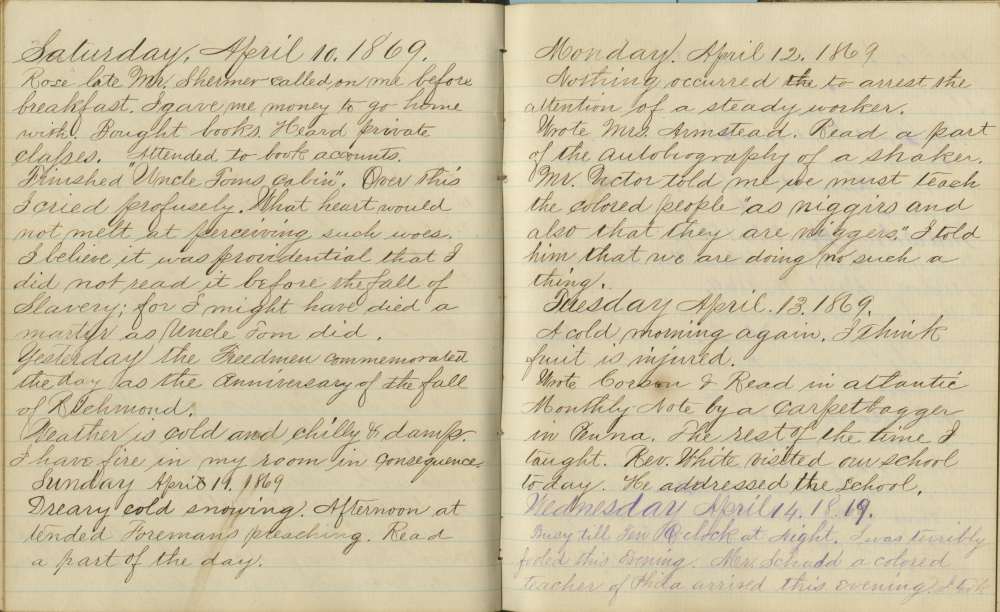 Saturday, April 10. 1869.
Rose late Mr. Shermer called on me before
breakfast. I gave me money to go home
with. Bought books. Heard private
classes. Attended to book accounts.
Finished "Uncle Toms cabin". Over this
I cried profusely. What heart would
not melt at perceiving such woes.
I believe it was providential that I
did not read it before the fall of
Slavery; for I might have died a
martyr as Uncle Tom did.
Yesterday the Freedmen commemorated
the day as the anniversary of the fall
of Richmond.
Weather is cold and chilly & damp.
I have fire in my room in consequence.
Sunday April 11. 1869
Dreary cold snowing. Afternoon at
tended Foremans preaching. Read
a part of the day.
Monday. April 12. 1869
Nothing occurred the to arrest the
attention of a steady worker.
Wrote Mrs. Armstead. Read a part
of the autobiography of a shaker.
Mr. Victor told me we must teach
the colored people "as niggirs and
also that they are niggers." I told
him that we are doing no such a
thing.
Tuesday April. 13. 1869.
A cold morning again. I think
fruit is injured.
Wrote Corson & Read in atlantic
Monthly Note by a Carpetbagger
in Penna. The rest of the time I
taught. Rev. White visited our school
today. He addressed the school.
Wednesday April 14. 18.19.
Busy till Ten O clock at night. I was terribly
fooled this Evening. Mrs. Schadd a colored
teacher of Phila arrived this evening. I